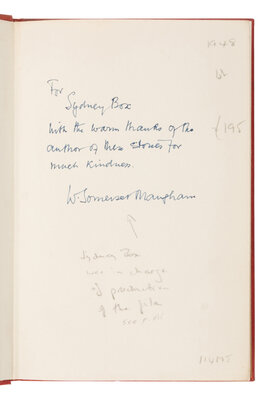 1948
£195
For
Sydney Box
With the warm thanks of the
author of these stories for
much kindness.
W. Somerset Maugham
Sydney Box
was in charge
of production
of the film
see p.